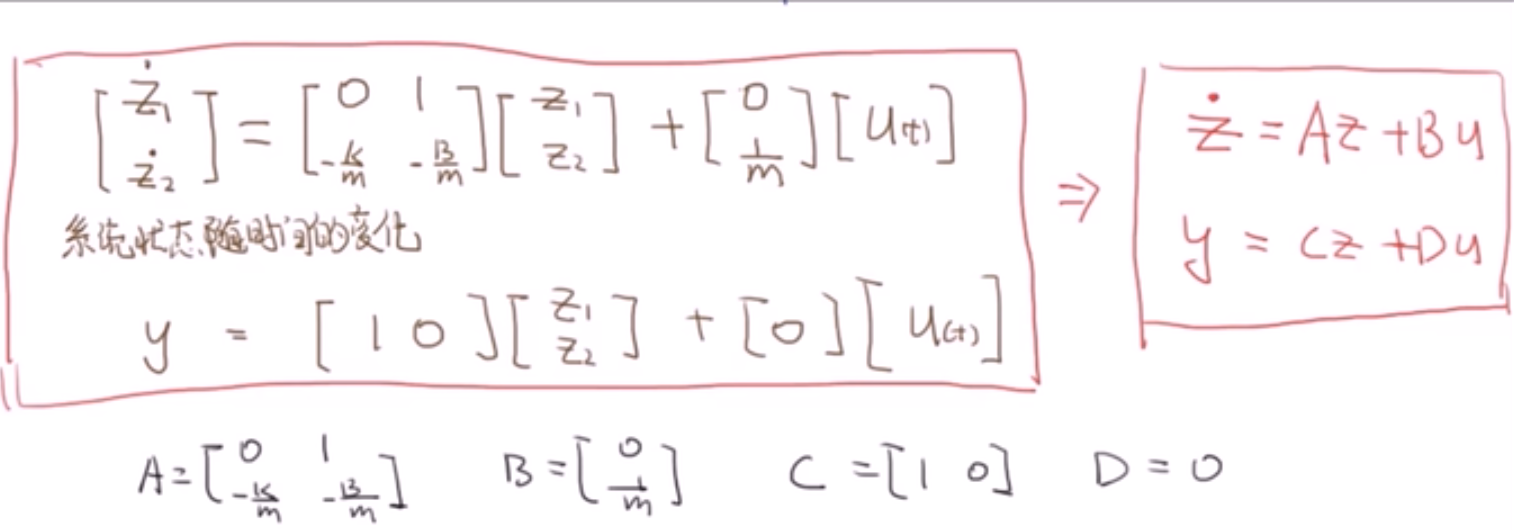 [ż₁ ż₂] = [0 1 -k/m -B/m] [z₁ z₂] + [0 1/m] [u(t)]
系统状态随时间的变化
y = [1 0] [z₁ z₂] + [0] [u(t)]
⇒
ż = Az + Bu
y = Cz + Du
A = [0 1 -k/m -B/m] B = [0 1/m] C = [1 0] D = 0